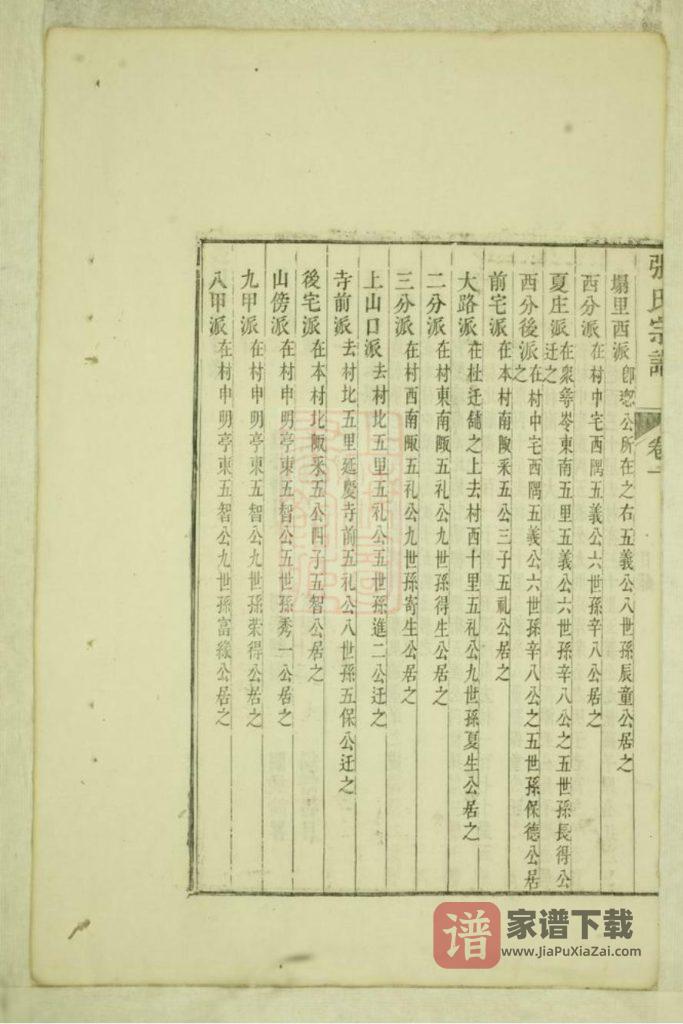 張氏宗譜 卷一
塌里西派 即㤅公所在之右五義公八世孫辰童公居之
西分派 在村中宅西隅五義公六世孫辛八公居之
夏庄派 在衆夅岺東南五里五義公六世孫辛八公之五世孫長得公迁之
西分後派 在村中宅西隅五義公六世孫辛八公之五世孫保德公居之
前宅派 在本村南陬釆五公三子五礼公居之
大路派 在杜迁舖之上去村西十里五礼公九世孫夏生公居之
二分派 在村東南陬五礼公九世孫得生公居之
三分派 在村西南陬五礼公九世孫寄生公居之
上山口派 去村北五里五礼公五世孫進二公迁之
寺前派 去村北五里延慶寺前五礼公八世孫五保公迁之
後宅派 在本村北陬釆五公四子五智公居之
山傍派 在村申明亭東五智公五世孫秀一公居之
九甲派 在村申明亭東五智公九世孫荣得公居之
八甲派 在村申明亭東五智公九世孫富緣公居之
谱 家谱下载
www.JiaPuXiaZai.com